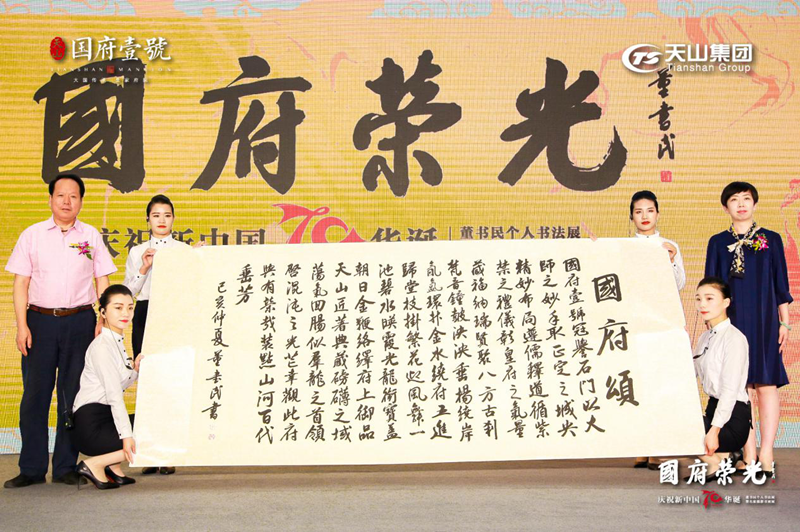 国府壹號
TS 天山集团
Tianshan Group
國府荣光
董書民
庆祝新中国70华诞
董书民个人书法展
國府頌
國府壹號冠譽石门以大
師之妙手取正定之城央
精妙布局遵儒釋道循紫
禁之禮儀彰皇府之氣量
藏福納瑞賢聚八方古刹
梵音鐘鼓泱泱垂楊绕岸
氤氲環抱金水绕府五進
歸堂枝掛繁花迎风舞一
池碧水暎霞光龍銜寶盖
朝日金雕络绎府上御品
天山匠著典藏磅礴之城
蕩氣回腸似羣龍之首領
啓混沌之光芒幸觀此府
與有榮哉装點山河百代
垂芳
己亥仲夏董书民書
國府荣光
庆祝新中国70华诞